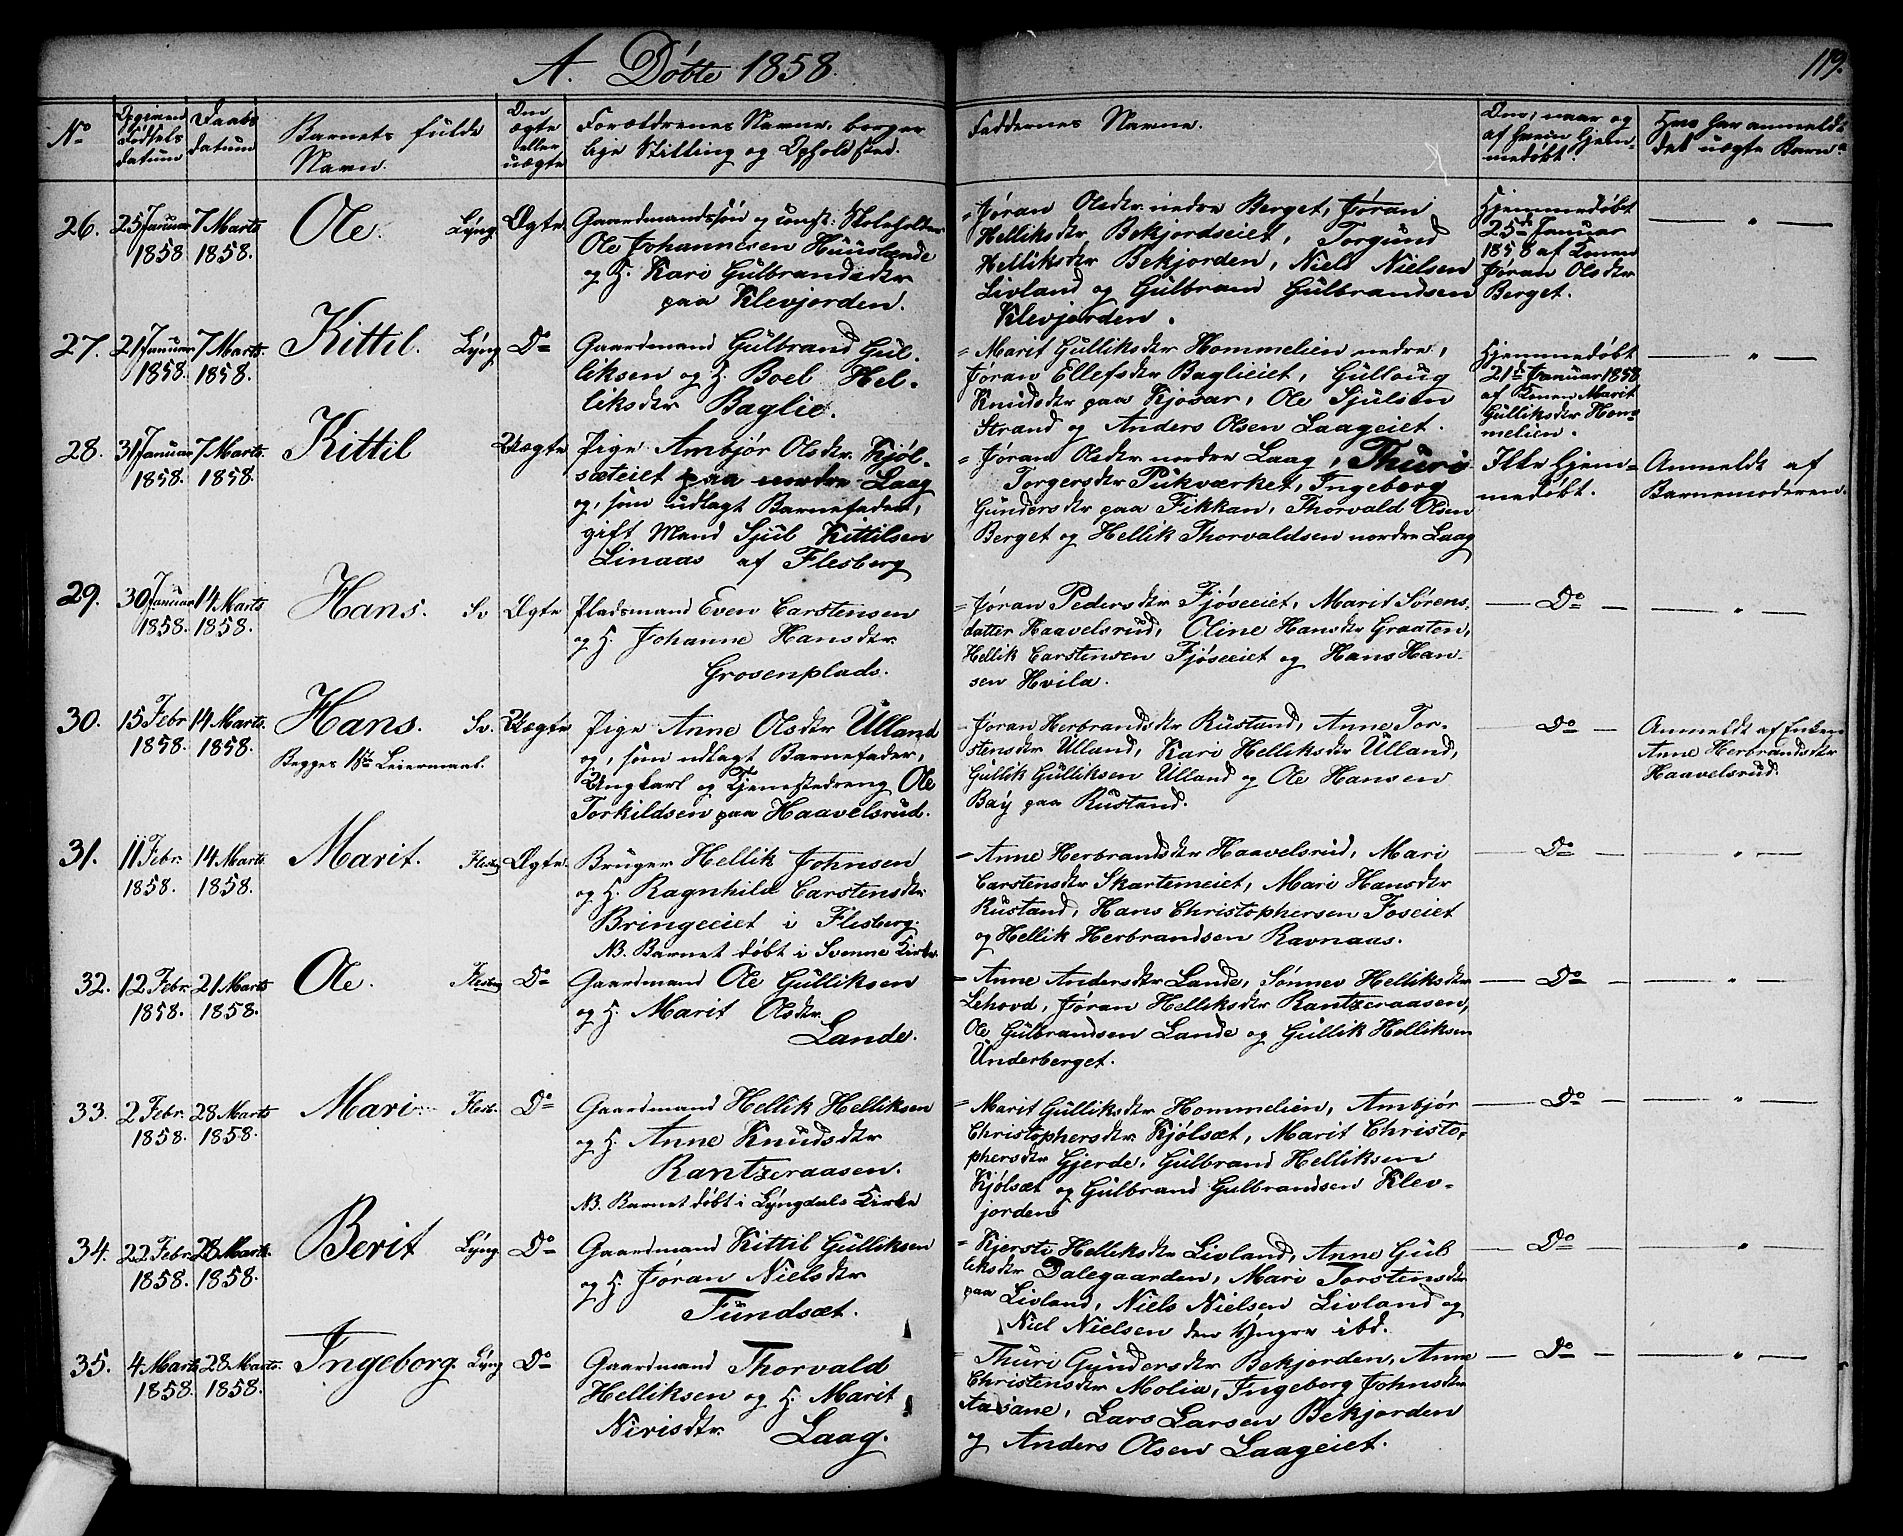 A. Døbte 1858.
119.
No
Opgiven Fødsels datum
Daabs datum
Barnets fulde Navn.
Om ægte eller uægte
Forældrenes Navne, borgerlige Stilling og Opholdssted.
Faddernes Navne.
Om, naar og af hvem hjemmedøbt.
Hvo har anmeldt det uægte Barn.
26. 25 Januar 1858 7 Marts 1858. Ole. Lÿng. Ægte
Gaardmandssøn og const. Skoleholder
Ole Johannesen Huuslende
og H. Kari Gulbrandsdtr
paa Klevjorden.
= Jøran Olsdtr nedre Berget, Jøran
Helliksdtr Bekjordseiet, Torgund
Helliksdtr Bekjorden, Niels Nielsen
Livland og Gulbrand Gulbrandsen
Klevjorden.
Hjemmedøbt
25de Januar
1858 af Konen
Jøran Olsdtr
Berget.
— " —
27. 21 Januar 1858. 7 Marts 1858. Kittil. Lÿng Do
Gaardmand Gulbrand Gul-
liksen og H. Boel Hel-
liksdtr Baglie.
= Marit Gulliksdtr Hommelien nedre,
Jøran Ellefsdtr Baglieiet, Gulloug
Knudsdtr paa Kjosar, Ole Sjulsen
Strand og Anders Olsen Laageiet.
Hjemmedøbt
21de Januar 1858
af Konen Marit
Gulliksdtr Hom-
melien.
— " —
28. 31 Januar 1858. 7 Marts 1858. Kittil Uægte
Pige Ambjør Olsdtr Kjøl-
sæteiet paa nordre Laag
og, som udlagt Barnefader,
gift Mand Sjul Kittilsen
Linaas af Flesberg
= Jøran Olsdtr nordre Laag, Thuri
Torgersdtr Pukværket, Ingeborg
Gundersdtr paa Fikkan, Thorvald Olsen
Berget og Hellik Thorvaldsen nordre Laag
Ikke hjem-
medøbt.
Anmeldt af
Barnemoderen.
29. 30 Januar 1858. 14 Marts 1858. Hans. Sv Ægte
Pladsmand Even Carstensen
og H. Johanne Hansdtr
Grosenplads.
= Jøran Pedersdtr Fjøseeiet, Marit Sørens-
datter Haavelsrud, Oline Hansdtr Graaten,
Hellik Carstensen Fjøseeiet og Hans Han-
sen Hvila.
— Do —
— " —
30. 15 Febr 1858. 14 Marts 1858. Hans. Sv. Uægte
Begges 1ste Leiermaal.
Pige Anne Olsdtr Ulland
og, som udlagt Barnefader,
Ungkarl og Tjenestedreng Ole
Torkildsen paa Haavelsrud.
= Jøran Herbrandsdtr Rustand, Anne Tor-
stensdtr Ulland, Kari Helliksdtr Ulland,
Gullik Gulliksen Ulland og Ole Hansen
Bay paa Rustand.
— Do —
Anmeldt af Enken
Anne Herbrandsdtr
Haavelsrud.
31. 11 Febr. 1858. 14 Marts 1858. Marit. Flesbg Ægte.
Bruger Hellik Johnsen
og H. Ragnhild Carstensdtr
Bringeeiet i Flesberg.
NB. Barnet døbt i Svenne Kirke.
= Anne Herbrandsdtr Haavelsrud, Mari
Carstensdtr Skartemeiet, Mari Hansdtr
Rustand, Hans Christophersen Foseiet
og Hellik Herbrandsen Ravnaas.
— Do —
— " —
32. 12 Febr. 1858. 21 Marts 1858. Ole. Flesbg Do
Gaardmand Ole Gulliksen
og H. Marit Olsdtr
Lande.
= Anne Andersdtr Lande, Sønnev Helliksdtr
Lehovd, Jøran Helliksdtr Rantzeraasen,
Ole Gulbrandsen Lande og Gullik Helliksen
Underberget.
— Do —
— " —
33. 2 Febr. 1858. 28 Marts 1858. Mari Flesb. Do
Gaardmand Hellik Helliksen
og H. Anne Knudsdtr
Rantzeraasen.
NB. Barnet døbt i Lÿngdals Kirke
= Marit Gulliksdtr Hommelien, Ambjør
Christophersdtr Kjølsæt, Marit Christo-
phersdtr Gjerde, Gulbrand Helliksen
Kjølsæt og Gulbrand Gulbrandsen Klev-
jorden
— Do —
— " —
34. 22 Febr 1858. 28 Marts 1858. Berit Lÿng. Do
Gaardmand Kittil Gulliksen
og H. Jøran Nielsdtr
Fundsæt.
= Kjersti Helliksdtr Livland, Anne Gul
liksdtr Dalegaarden, Mari Torstensdtr
paa Livland, Niels Nielsen Livland og
Niel Nielsen den Yngre ibd.
— Do —
— " —
35. 4 Marts 1858. 28 Marts 1858. Ingeborg. Lÿng Do
Gaardmand Thorvald
Helliksen og H. Marit
Nirisdtr Laag.
Thuri Gundersdtr Bekjorden, Anne
Christensdtr Molia, Ingeborg Johnsdtr
Aasane, Lars Larsen Bekjorden
og Anders Olsen Laageiet.
— Do —
— " —